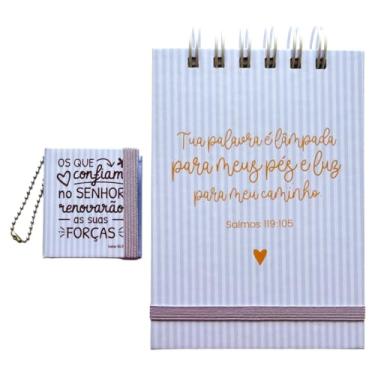 OS QUE
confiam
no SENHOR
renovarão
as suas
FORÇAS
Tua palavra é lâmpada
para meus pés e luz
para meu caminho.
Salmos 119:105